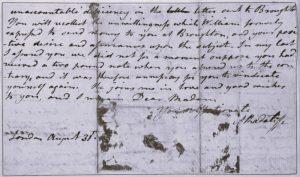 unaccountable deficiency in the letter sent to Broughton
You will recollect the unwillingness which William formerly
expressed to send money to you at Broughton, and your posi-
tive desire and perseverance upon the subject. In my last
I found you were not for a moment suppose you had
received a two pound note when you assured me to the con-
trary, and it was therefore unnecessary for you to vindicate
yourself again. He joins me in love and good wishes
to you, and I remain Dear Madam,
Your affectionate
A Radcliffe
London August 21st